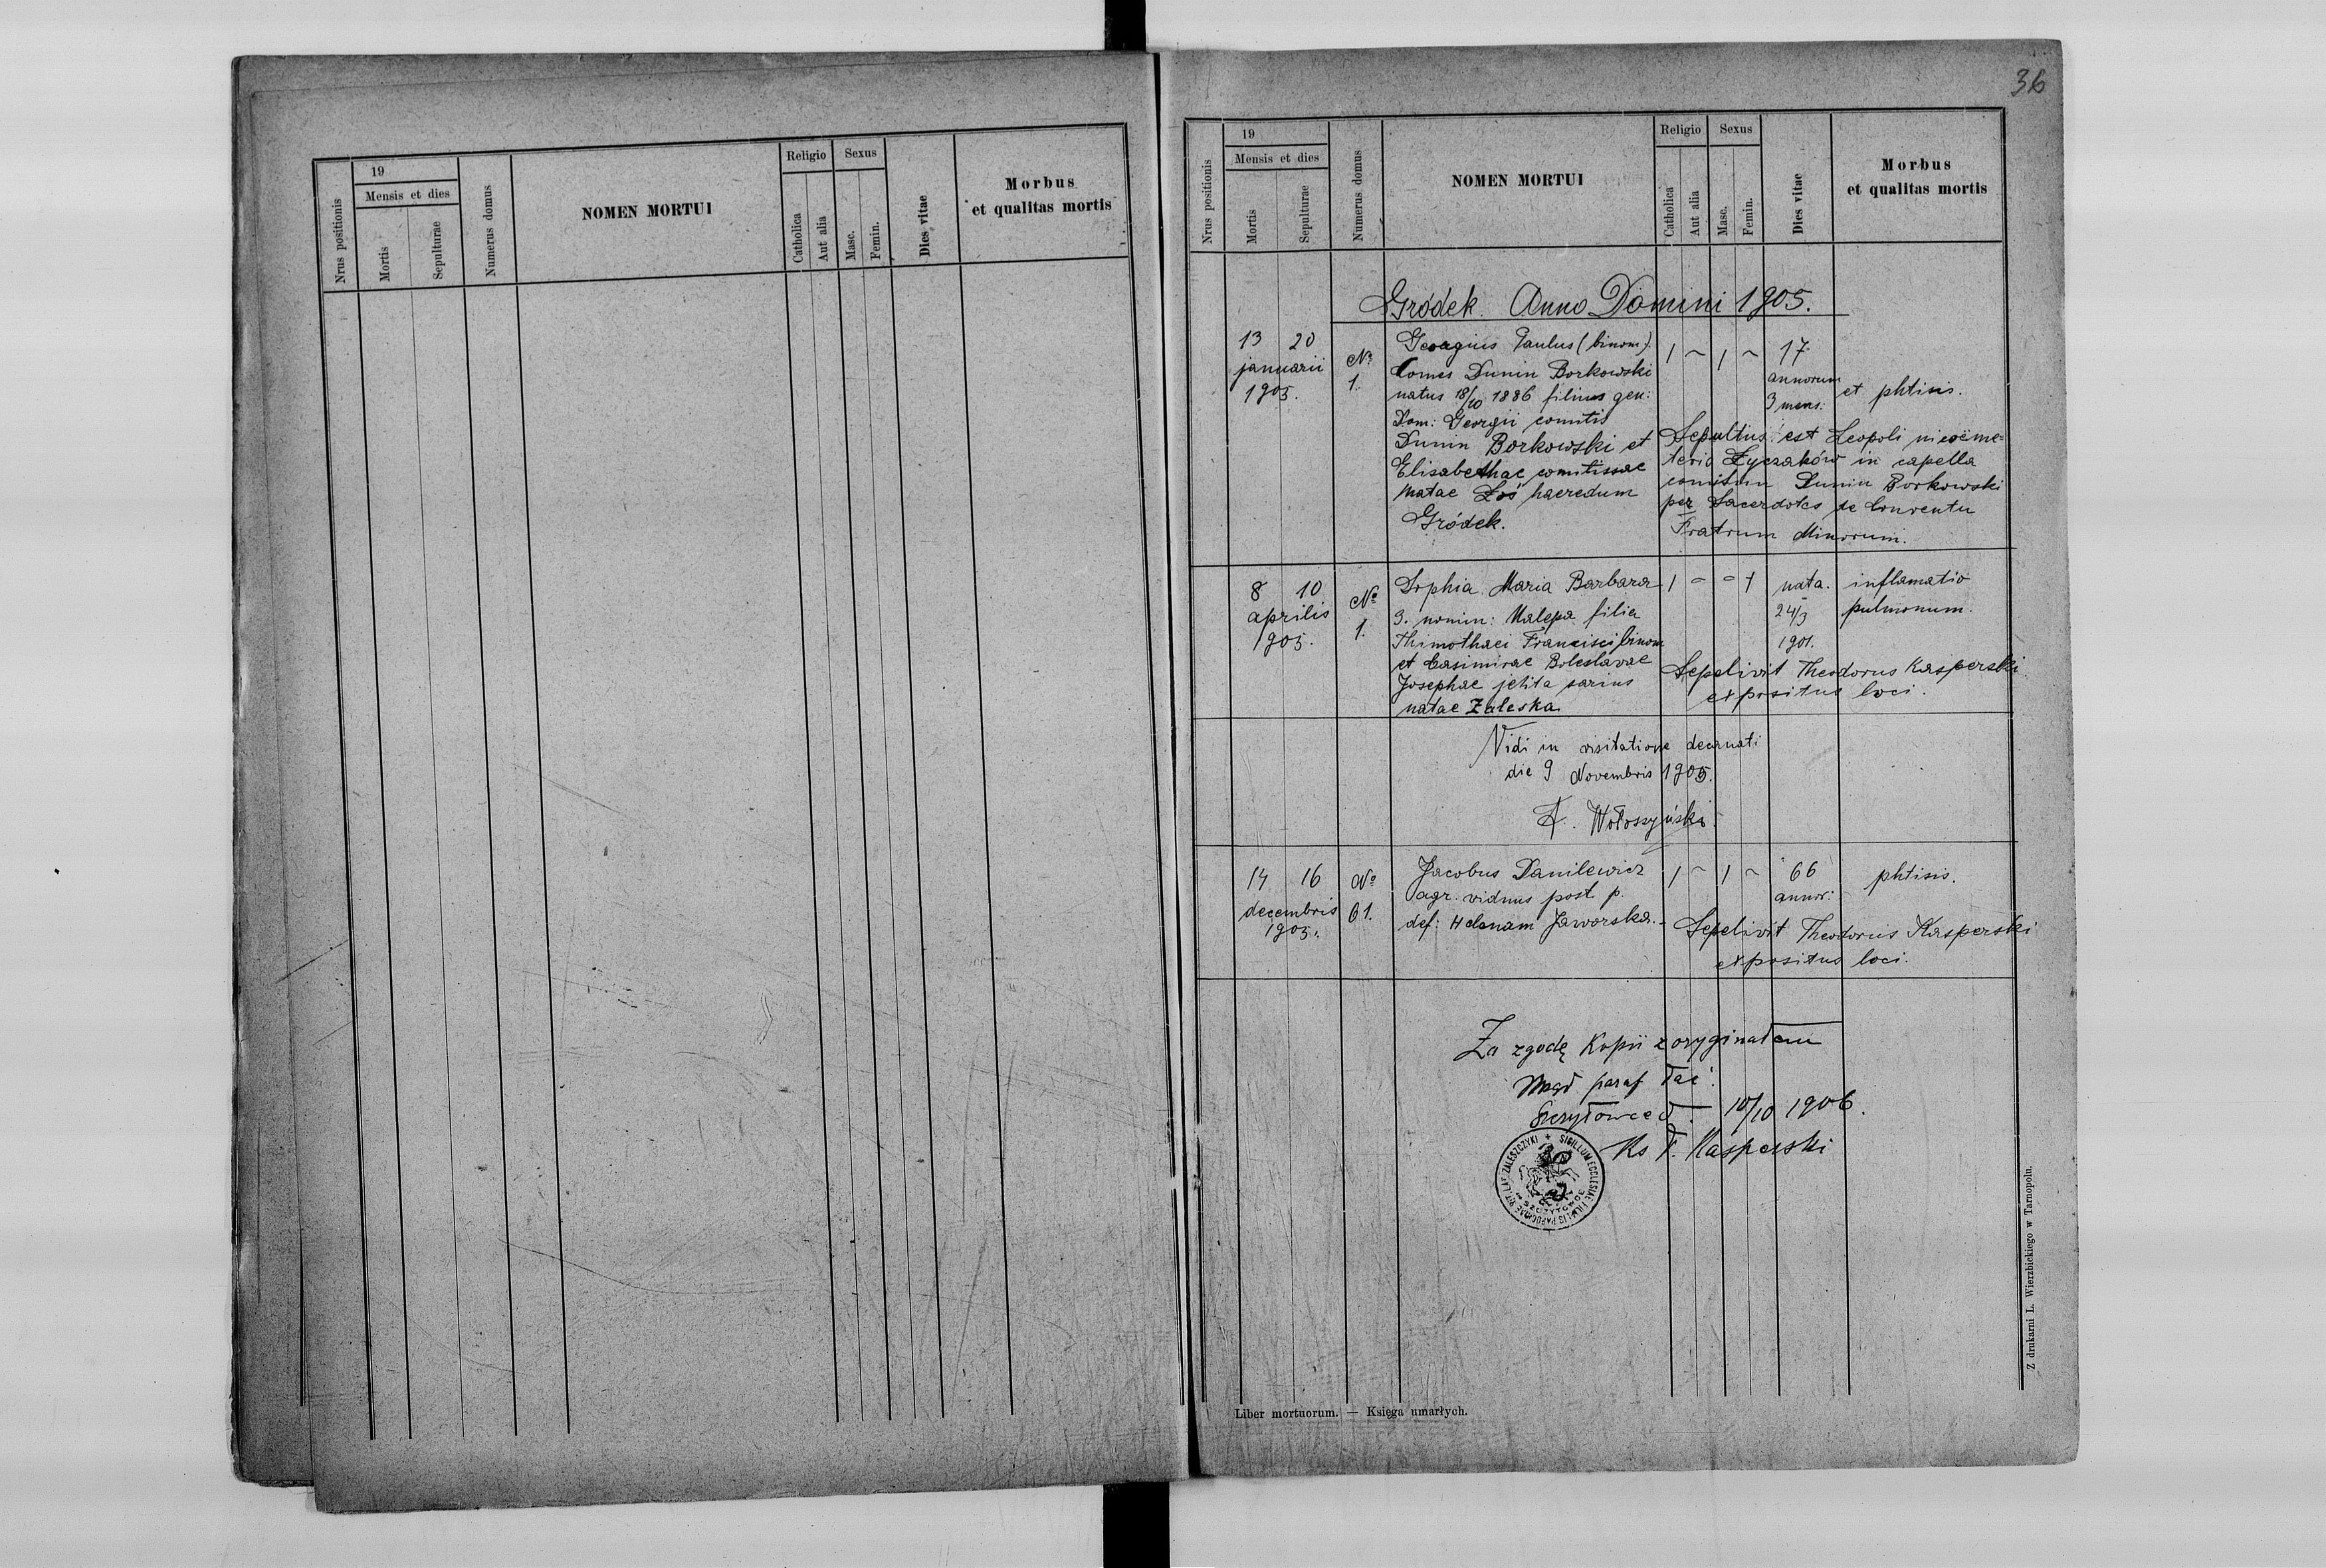 36
Nrus positionis
19
Mensis et dies
Mortis
Sepulturae
Numerus domus
NOMEN MORTUI
Religio
Catholica
Aut alia
Sexus
Masc.
Femin.
Dies vitae
Morbus
et qualitas mortis
Nrus positionis
19
Mensis et dies
Mortis
Sepulturae
Numerus domus
NOMEN MORTUI
Religio
Catholica
Aut alia
Sexus
Masc.
Femin.
Dies vitae
Morbus
et qualitas mortis
Gródek. Anno Domini 1905.
13 20
januarii
1905.
No
1.
Georgius Paulus (binom).
Comes Dunin Borkowski
natus 18/10 1886 filius gen:
Dom: Georgii comitis
Dunin Borkowski et
Elisabethae comitissae
natae Łoś haeredum
Gródek.
1 ~ 1 ~
17
annorum
3 mens:
et phtisis.
Sepultus est Leopoli
Łyczaków in capella
comitum Dunin Borkowski
per Sacerdotes de Conventu
Fratrum Minorum.
8 10
aprilis
1905.
No
1.
Sophia Maria Barbara
3. nomin: Malepa filia
Thimothaei Francisci binom
et Casimirae Boleslavae
Josephae
natae Zaleska
1 - - 1
nata.
24/3
1901.
inflamatio
pulmonum.
Sepelivit Theodorus Kasperski
expositus loci.
Vidi in visitatione decanati
die 9 Novembris 1905.
Wołoszyński
14 16
decembris
1905.
No
61.
Jacobus Danilewicz
agr. viduus post p.
def: Helenam Jaworska.-
1 ~ 1 ~
66
annor:
phtisis.
Sepelivit Theodorus Kasperski
expositus loci.
Za zgodę kopii z oryginałem
paraf łac.
10/10 1906.
Ks T. Kasperski
SIGILLUM ECCLESIAE FILIALIS PAROCHIAE RIT. LAT. ZALESZCZYKI +
Liber mortuorum. — Księga umarłych.
Z drukarni L. Wierzbickiego w Tarnopolu.